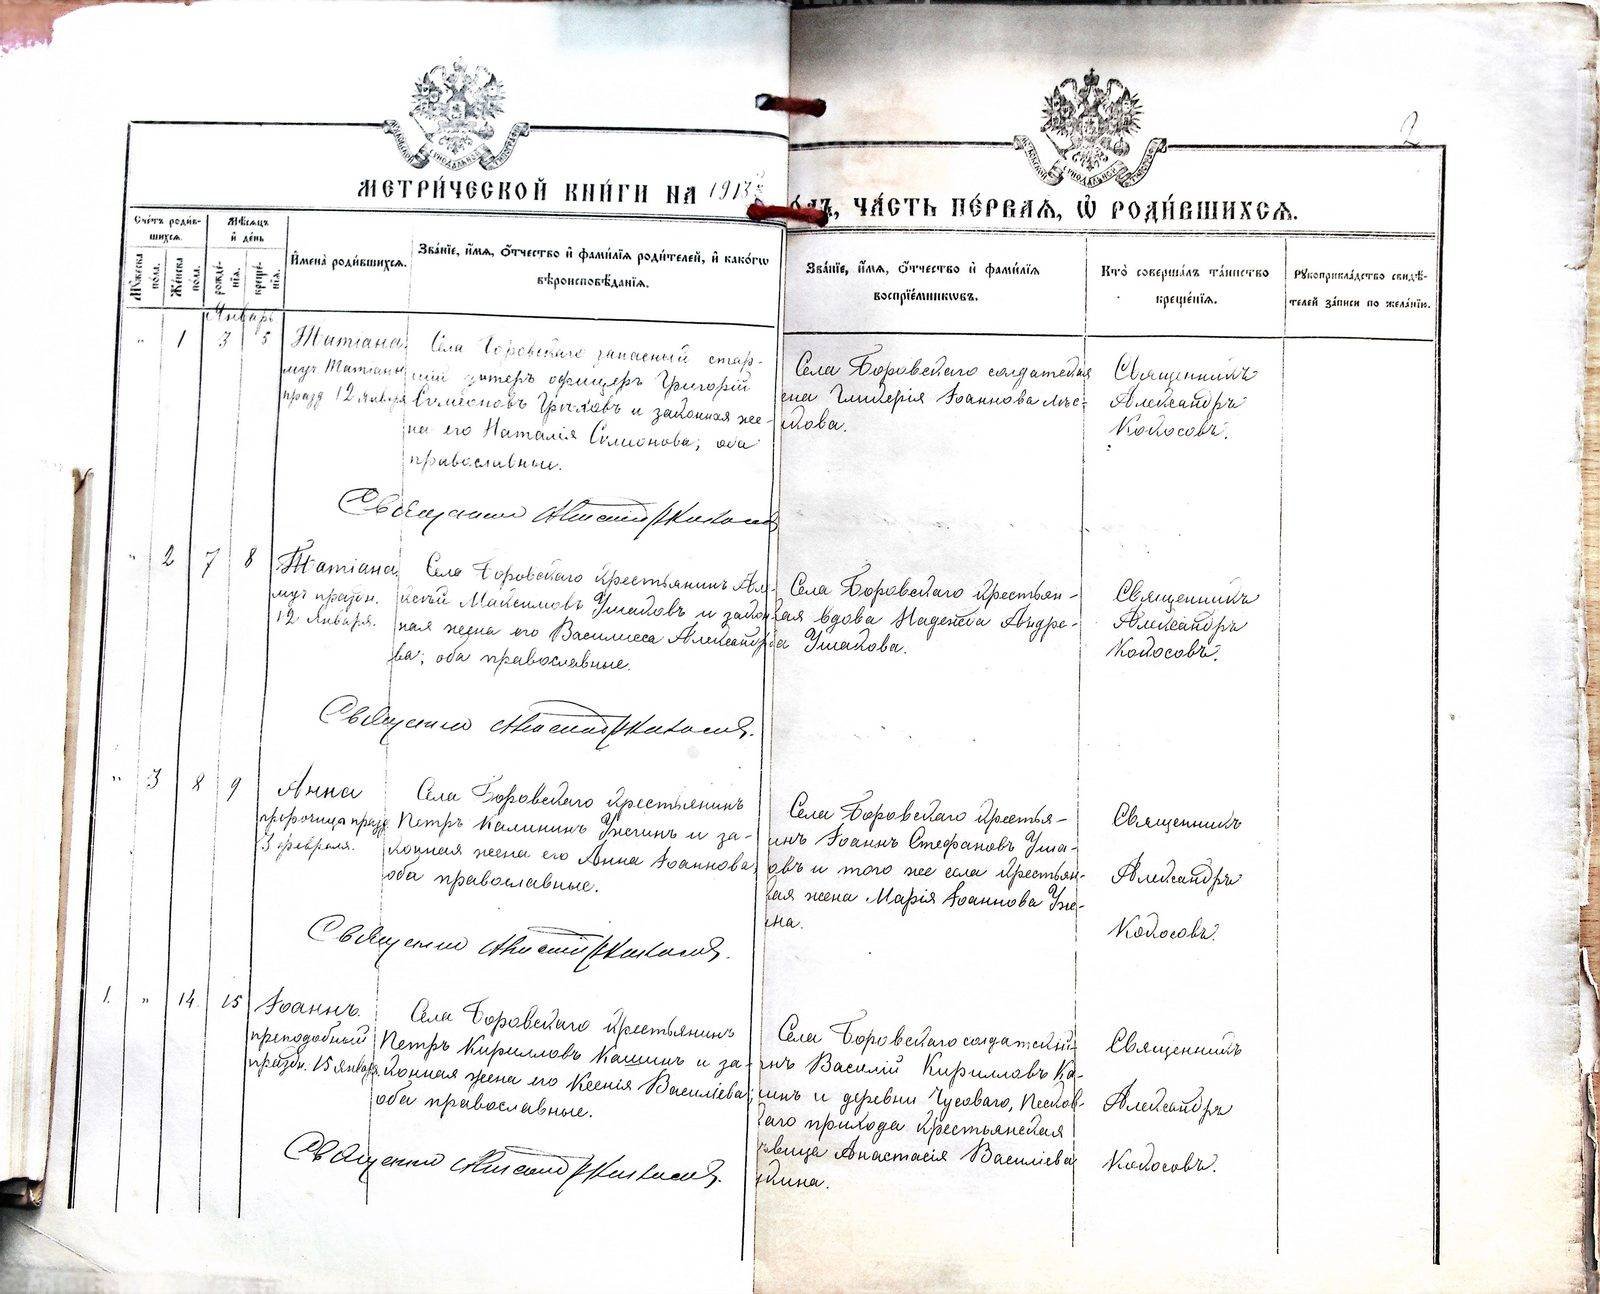 2
МЕТРИ́ЧЕСКОЙ КНИ́ГИ НА 1913 ГО́ДЪ, ЧА́СТЬ ПЕ́РВАѦ, Ѡ҆ РОДИ́ВШИХСѦ.
Сче́тъ роди́в-
шихсѧ.
Мѣ́сѧцъ
и҆ де́нь
Му́жеска по́ла.
Же́нска по́ла.
рожде́-
нїѧ.
креще́-
нїѧ.
И҆мена̀ роди́вшихсѧ.
Зва́нїе, и҆́мѧ, ѻ҆́тчество и҆ фами́лїѧ роди́телей, и҆ како́гѡ
вѣроисповѣ́данїѧ.
Зва́нїе, и҆́мѧ, ѻ҆́тчество и҆ фами́лїѧ
воспрїе́мникѡвъ.
Кто̀ соверша́лъ та́инство
креще́нїѧ.
Рꙋкоприкла́дство свидѣ́-
телей за́писи по жела́нїю.
Январь
" 1 3 5
Татіана
муч. Татіаны
празд 12 января
Села Боровскаго запасный стар-
шій унтеръ офицеръ Григорій
Симеоновъ и законная же-
на его Наталія Симионова; оба
православные.
Села Боровскаго солдатская
Гликерія Іоаннова
Священникъ
Александръ
Колосовъ.
Священникъ
" 2 7 8
Татіана
муч праздн.
12 Января.
Села Боровскаго крестьянинъ Але-
ксѣй Максимовъ Ушаковъ и закон-
ная жена его Василисса Александро-
ва; оба православные.
Села Боровскаго крестьян-
ская вдова Надежда Андре-
ева Ушакова.
Священникъ
Александръ
Колосовъ.
Священникъ
" 3 8 9
Анна
пророчица празд
3 февраля.
Села Боровскаго крестьянинъ
Петръ Калининъ Ужгинъ и за-
конная жена его Анна Іоаннова,
оба православные.
Села Боровскаго крестья-
нинъ Іоаннъ Стефановъ Уша-
ковъ и того же села крестьян-
ская жена Марія Іоаннова
Священникъ
Александръ
Колосовъ.
Священникъ
1. " 14 15
Іоаннъ.
преподобный
праздн. 15 января
Села Боровскаго крестьянинъ
Петръ Кирилловъ Кашинъ и за-
конная жена его Ксенія Василіева;
оба православные.
Села Боровскаго солдатскій
сынъ Василій Кирилловъ Ка-
шинъ и деревни Чусоваго, Песков-
скаго прихода крестьянская
дѣвица Анастасія Василіева
Священникъ
Александръ
Колосовъ.
Священникъ